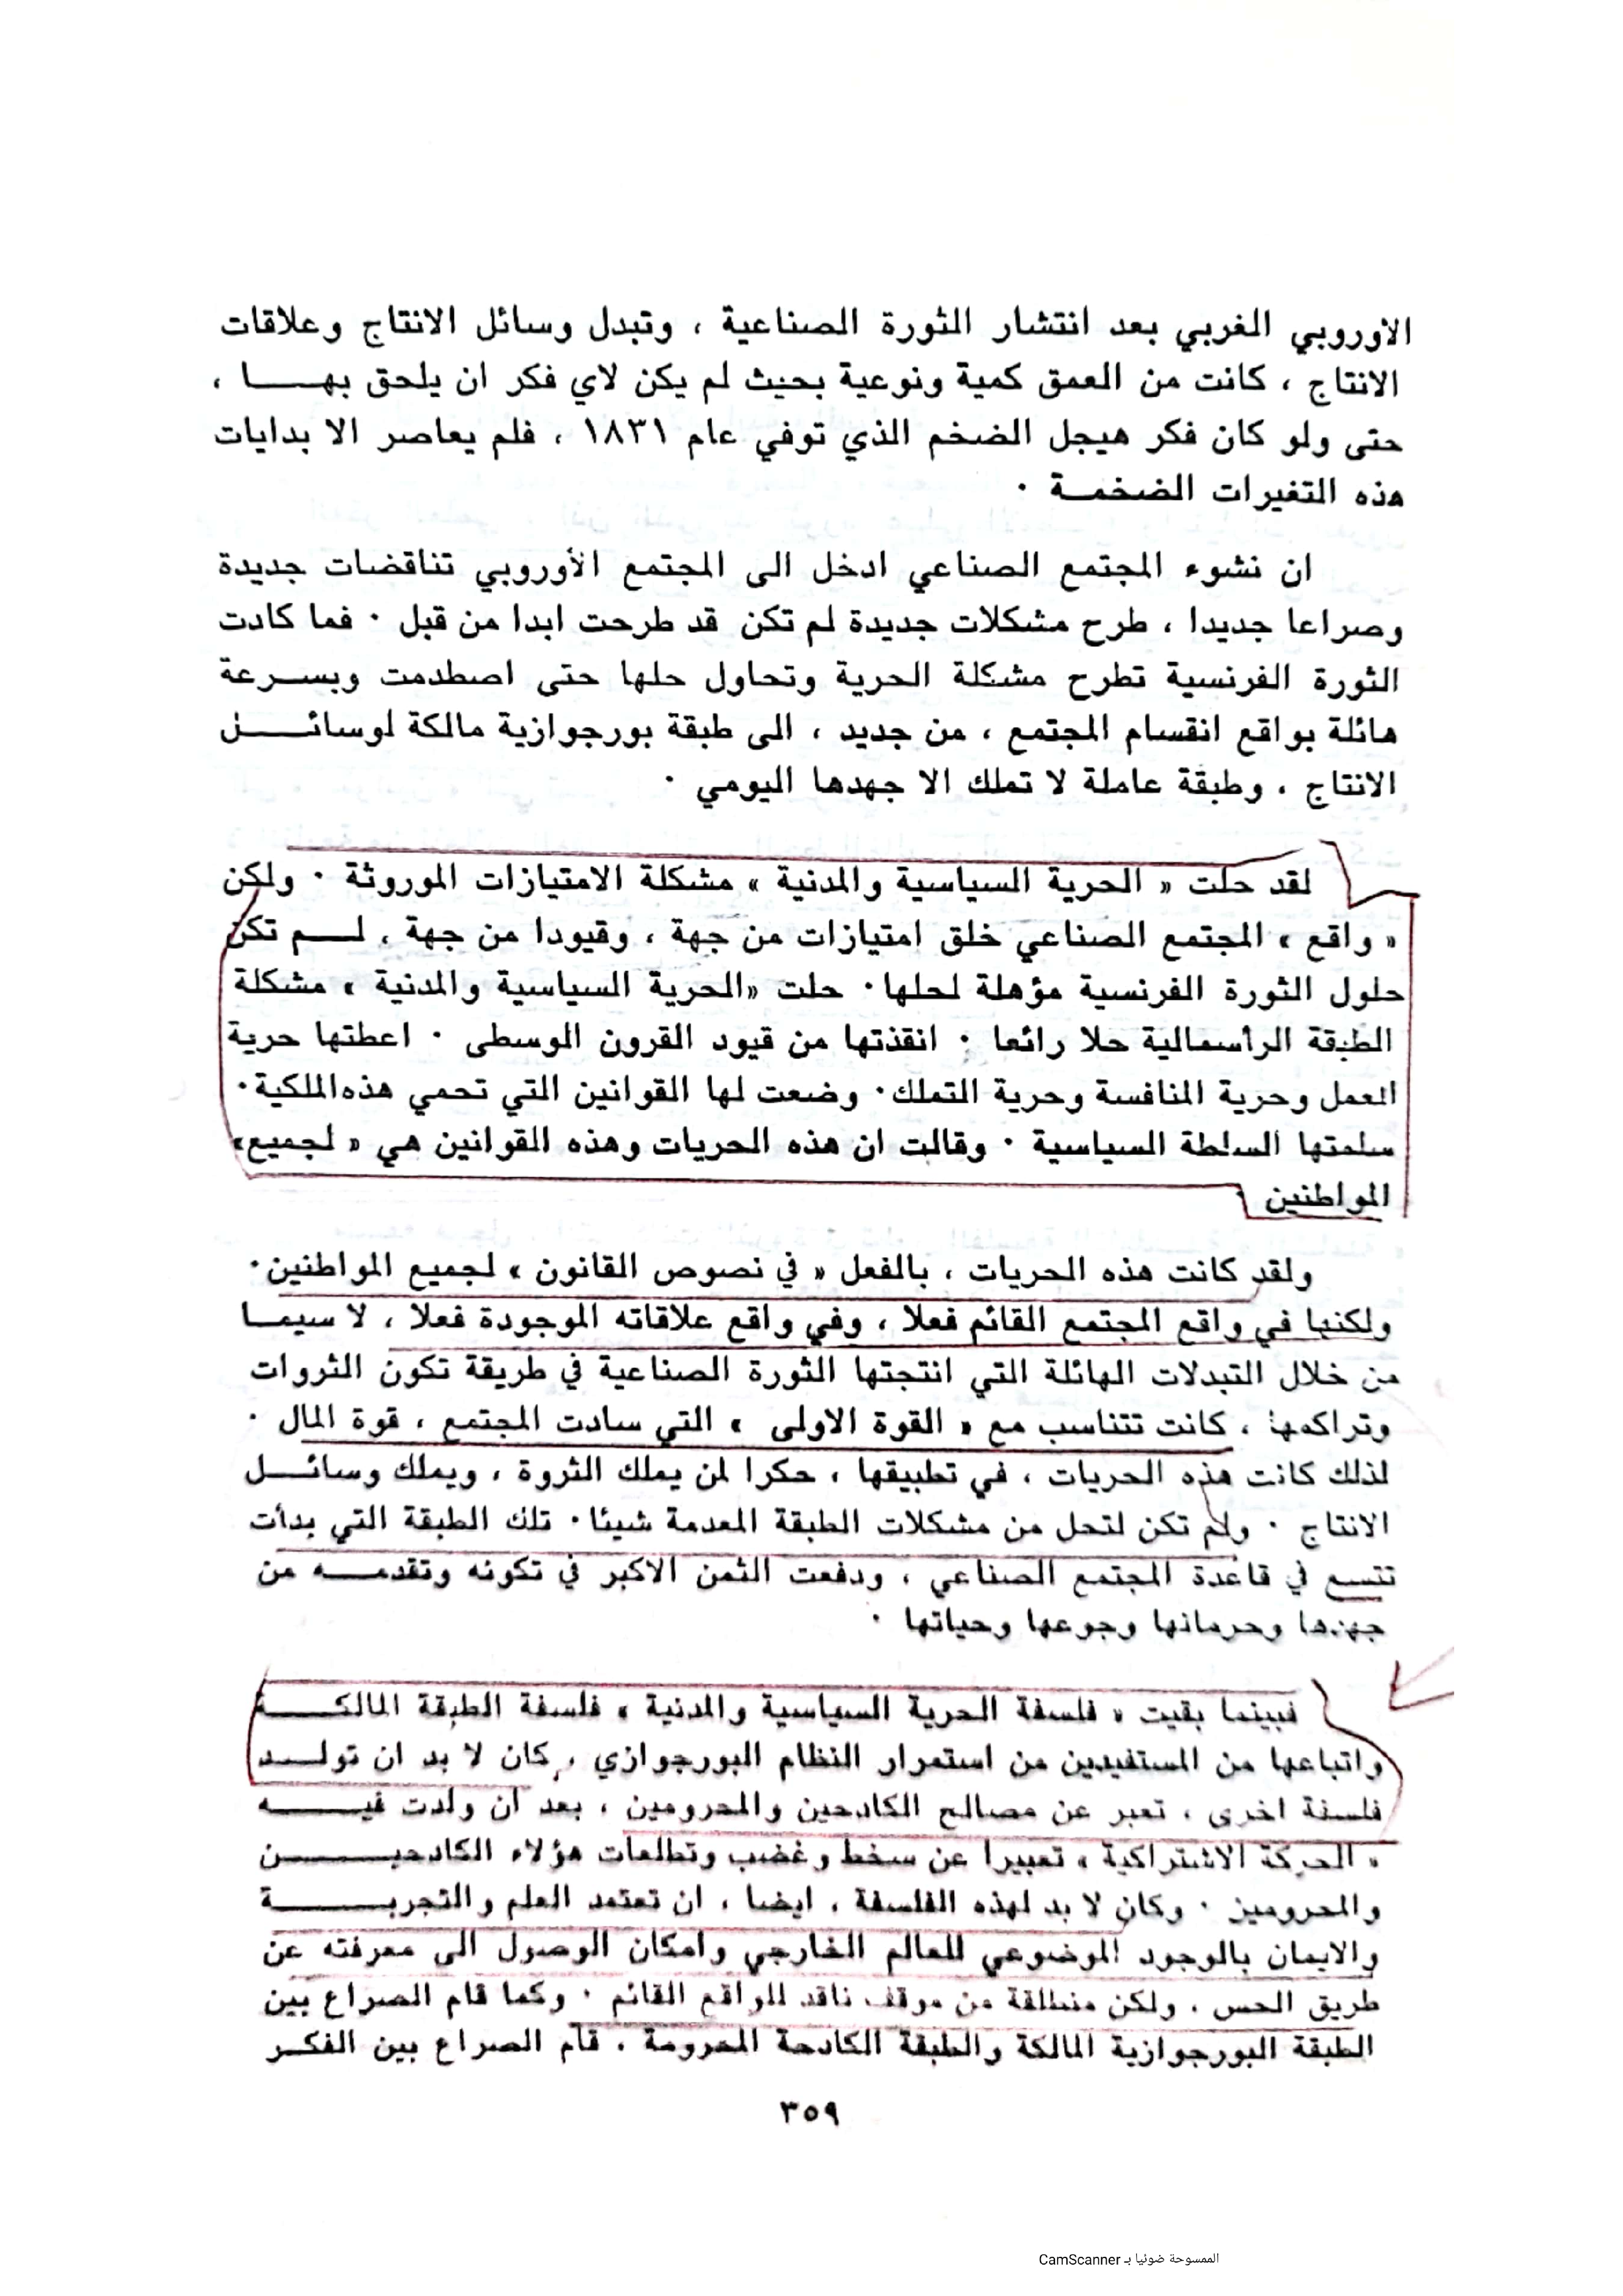 الاوروبي الغربي بعد انتشار الثورة الصناعية ، وتبدل وسائل الانتاج وعلاقات
الانتاج ، كانت من العمق كمية ونوعية بحيث لم يكن لاي فكر ان يلحق بهـــا ،
حتى ولو كان فكر هيجل الضخم الذي توفي عام ١٨٣١ ، فلم يعاصر الا بدايات
هذه التغيرات الضخمـة ·
ان نشوء المجتمع الصناعي ادخل الى المجتمع الأوروبي تناقضات جديدة
وصراعا جديدا ، طرح مشكلات جديدة لم تكن قد طرحت ابدا من قبل · فما كادت
الثورة الفرنسية تطرح مشكلة الحرية وتحاول حلها حتى اصطدمت وبسـرعة
هائلة بواقع انقسام المجتمع ، من جديد ، الى طبقة بورجوازية مالكة لوسائـــل
الانتاج ، وطبقة عاملة لا تملك الا جهدها اليومي ·
لقد حلت « الحرية السياسية والمدنية » مشكلة الامتيازات الموروثة · ولكن
« واقع » المجتمع الصناعي خلق امتيازات من جهة ، وقيودا من جهة ، لـــم تكن
حلول الثورة الفرنسية مؤهلة لحلها · حلت «الحرية السياسية والمدنية » مشكلة
الطبقة الرأسمالية حلا رائعا · انقذتها من قيود القرون الوسطى · اعطتها حرية
العمل وحرية المنافسة وحرية التملك · وضعت لها القوانين التي تحمي هذه الملكية ·
سلمتها السلطة السياسية · وقالت ان هذه الحريات وهذه القوانين هي « لجميع»
المواطنين ·
ولقد كانت هذه الحريات ، بالفعل « في نصوص القانون » لجميع المواطنين ·
ولكنها في واقع المجتمع القائم فعلا ، وفي واقع علاقاته الموجودة فعلا ، لا سيمـا
من خلال التبدلات الهائلة التي انتجتها الثورة الصناعية في طريقة تكون الثروات
وتراكمها ، كانت تتناسب مع « القوة الاولى » التي سادت المجتمع ، قوة المال ·
لذلك كانت هذه الحريات ، في تطبيقها ، حكرا لمن يملك الثروة ، ويملك وسائــل
الانتاج · ولم تكن لتحل من مشكلات الطبقة المعدمة شيئا · تلك الطبقة التي بدأت
تتسع في قاعدة المجتمع الصناعي ، ودفعت الثمن الاكبر في تكونه وتقدمـــه من
جهدها وحرمانها وجوعها وحياتها ·
فبينما بقيت « فلسفة الحرية السياسية والمدنية » فلسفة الطبقة المالكـــة
واتباعها من المستفيدين من استمرار النظام البورجوازي ، كان لا بد ان تولــد
فلسفة اخرى ، تعبر عن مصالح الكادحين والمحرومين ، بعد ان ولدت فيـــــه
« الحركة الاشتراكية » تعبيرا عن سخط وغضب وتطلعات هؤلاء الكادحيـــــن
والمحرومين · وكان لا بد لهذه الفلسفة ، ايضا ، ان تعتمد العلم والتجربـــــة
والايمان بالوجود الموضوعي للعالم الخارجي وامكان الوصول الى معرفته عن
طريق الحس ، ولكن منطلقة من موقف ناقد للواقع القائم · وكما قام الصراع بين
الطبقة البورجوازية المالكة والطبقة الكادحة المحرومة ، قام الصراع بين الفكـر
٣٥٩
الممسوحة ضوئيا بـ CamScanner